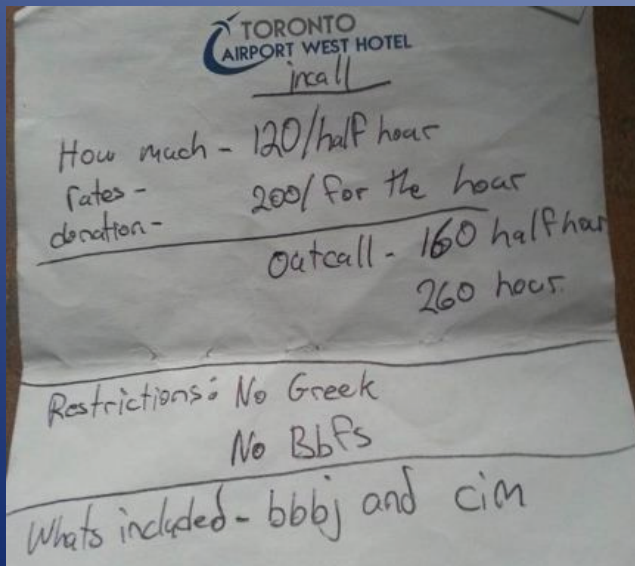 TORONTO
AIRPORT WEST HOTEL
incall
How much - 120/half hour
rates - 200/ for the hour
donation-
outcall - 160 half hour
260 hour.
Restrictions: No Greek
No Bbfs
Whats included - bbbj and cim